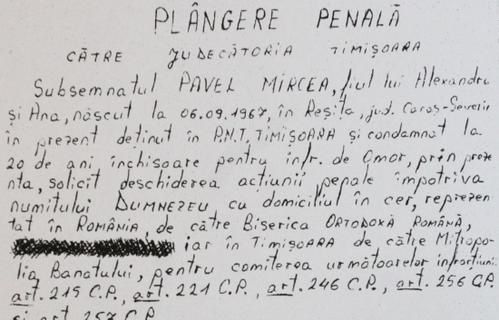 PLÂNGERE PENALĂ
CĂTRE JUDECĂTORIA TIMIȘOARA
Subsemnatul PAVEL MIRCEA, fiul lui Alexandru
și Ana, născut la 06.09.1967, în Reșița, jud. Caraș-Severin
în prezent deținut în P.N.T. TIMIȘOARA și condamnat la
20 de ani închisoare pentru infr. de Omor, prin preze
nta, solicit deschiderea acțiunii penale împotriva
numitului DUMNEZEU cu domiciliul în cer, reprezen
tat în ROMÂNIA, de către Biserica ORTODOXĂ ROMÂNĂ,
iar în TIMIȘOARA de către Mitropo
lia Banatului, pentru comiterea următoarelor infracțiuni:
art. 215 C.P., art. 221 C.P., art. 246 C.P., art. 256 C.P.
și art. 257 C.P.